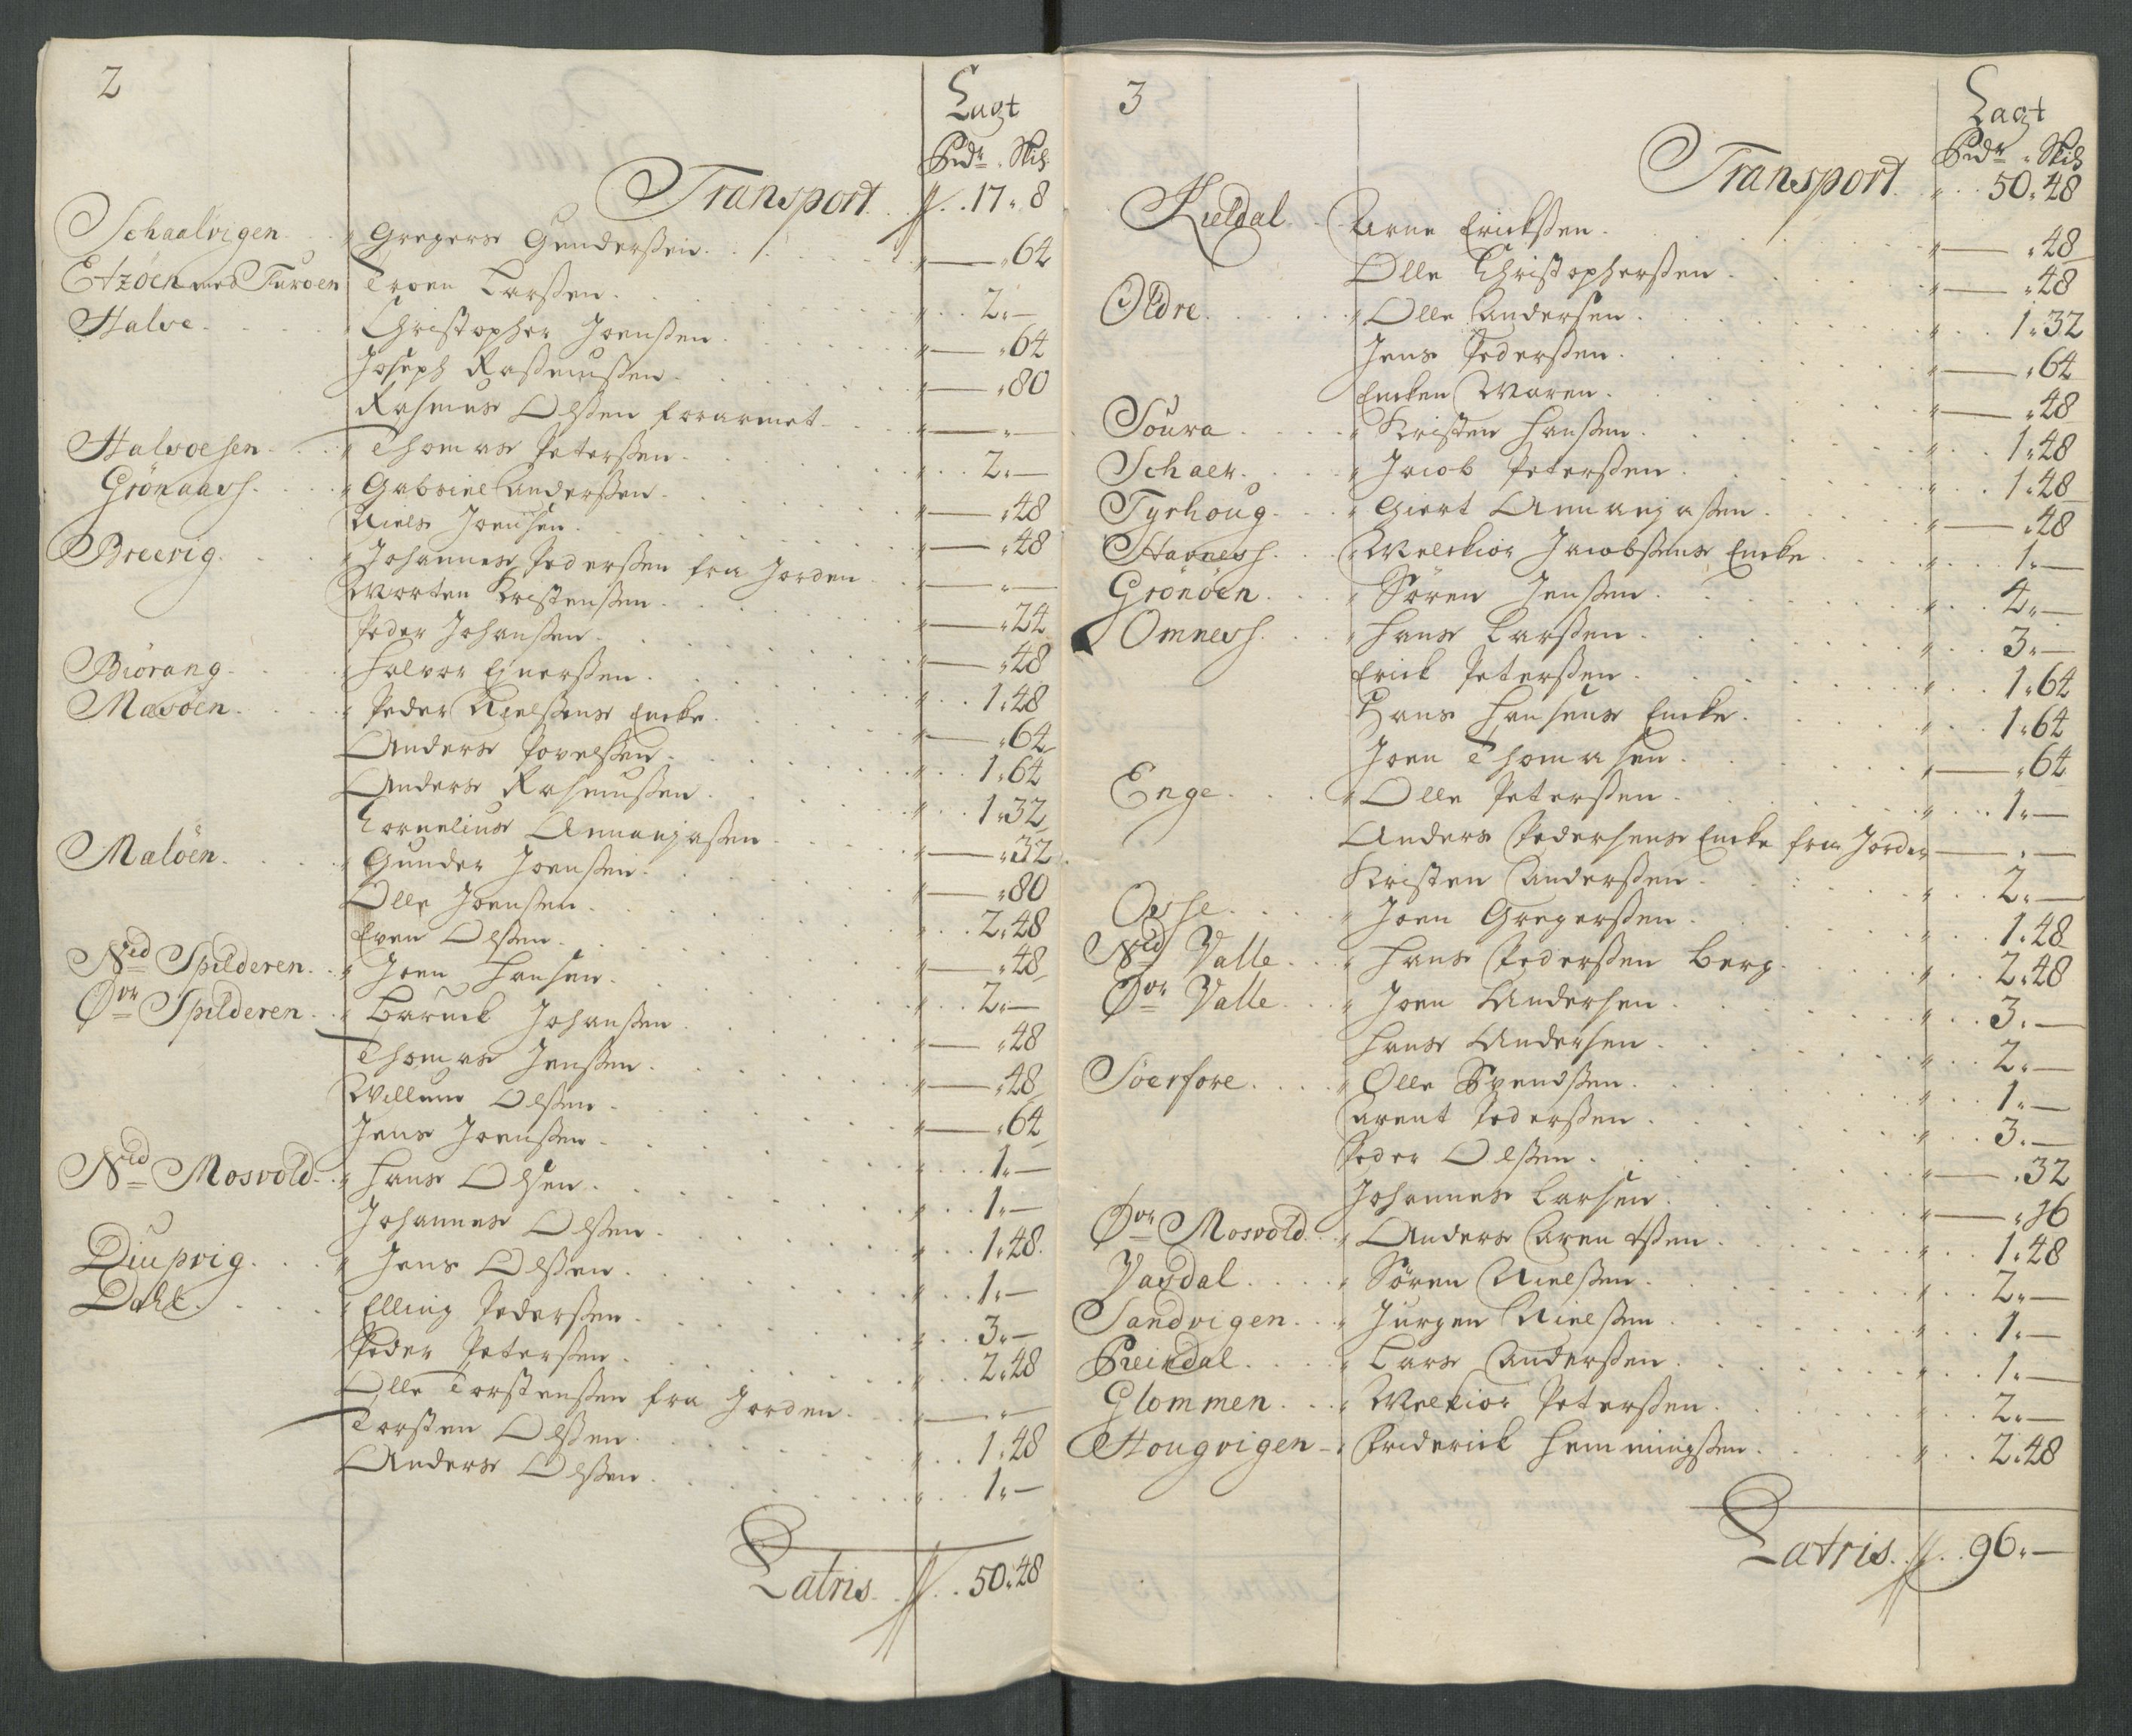 2
Lagt
Rdr. Skil
Transport. . 17. 8
Schaalvigen. Gregers Gundersßen. — 64
Etzöen med Turoen Troen Larsßen. 2. —
Halve. Christopher Joensßen. — 64
Joseph Rasmusßen. — 80
Rasmus Olsßen forarmet — —
Halvoesen. Thomas Petersßen. 2. —
Grönaas. Gabriel Andersßen. — 48
Niels Joensen. — 48
Breevig. Johannes Pedersßen fra Jorden — —
Morten Kristensßen. — 24
Peder Johansßen. — 48
Biörang. Halvor Ejnersßen. 1. 48
Masöen. Peder Nielsßens Encke. — 64
Anders Povelsßen. 1. 64
Anders Rasmusßen. 1. 32
Cornelius Annanjasßen — 32
Maløen. Gunder Joensßen. — 80
Olle Joensßen. 2. 48
Even Olsßen. — 48
Nid Spilderen. Joen Hansen. 2. —
Øvr Spilderen. Baruck Johansßen — 48
Thomas Jensßen. — 48
Willum Olsßen. — 64
Jens Joensßen. 1. —
Nid Mosvold. Hans Olsen. 1. —
Johannes Olsßen. 1. 48.
Diupvig. Jens Olsßen. 1. —
Dahl. Elling Pedersßen. 3. —
Peder Petersßen. 2. 48
Olle Torstensßen fra Jorden. — —
Torsten Olsßen. 1. 48
Anders Olsßen. 1. —
Latris. 50. 48
3
Lagt
Rdr. Skil
Transport. 50. 48
Kieldal. Arne Ericksßen. — 48
Olle Christophersßen. — 48
Oldre. Olle Andersen. 1. 32
Jens Pedersßen. — 64
Encken Maren. — 48
Soura. Kristen Hansßen. 1. 48
Schaer. Jacob Petersßen. 1. 48
Tyrhoug. Giert Annanjasßen. — 48
Havnes. Melckior Jacobsßens Encke. 1. —
Grönöen. Sören Jensßen. 4. —
Omnes. Hans Larsßen. 3. —
Erick Petersßen. 1. 64
Hans Hansens Encke. 1. 64
Joen Thomasen. — 64
Enge. Olle Petersßen. 1. —
Anders Pedersens Encke fra Jorden — —
Kristen Andersßen. 2. —
Joen Gregersßen. 1. 48
Nid Valle. Hans Pedersßen Berg. 2. 48
Øvr Valle. Joen Andersen. 3. —
Hans Andersen. 2. —
Söerfore. Olle Svendsßen. 1. —
Arent Pedersßen. 3. —
Peder Olsßen. — 32
Johannes Larsen. — 16
Øvr Mosvold. Anders Arentsßen. 1. 48
Vasdal. Sören Nielsßen. 2. —
Sandvigen. Jürgen Nielsßen. 1. —
Reindal. Lars Andersßen. 1. —
Glommen. Melkior Petersßen. 2. —
Hougvigen. Friderick Hemmingsßen. 2. 48
Latris. 96. —